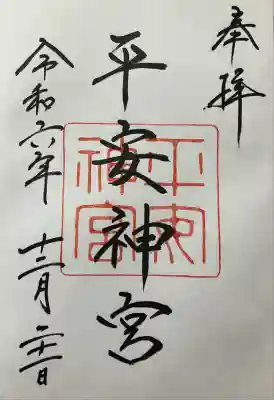 奉拝
平安神宮
平安神宮
令和六年 十二月 二十一日